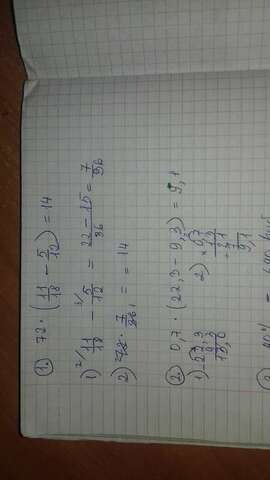 1. 72 · (11/18 − 5/12) = 14
1) 11/18 − 5/12 = 22 − 15/36 = 7/36
2) 72 · 7/36 = 14
2. 0,7 · (22,3 − 9,3) = 9,1
1) 22,3
− 9,3
13,0
2) × 0,7
13
+ 21
7
9,1